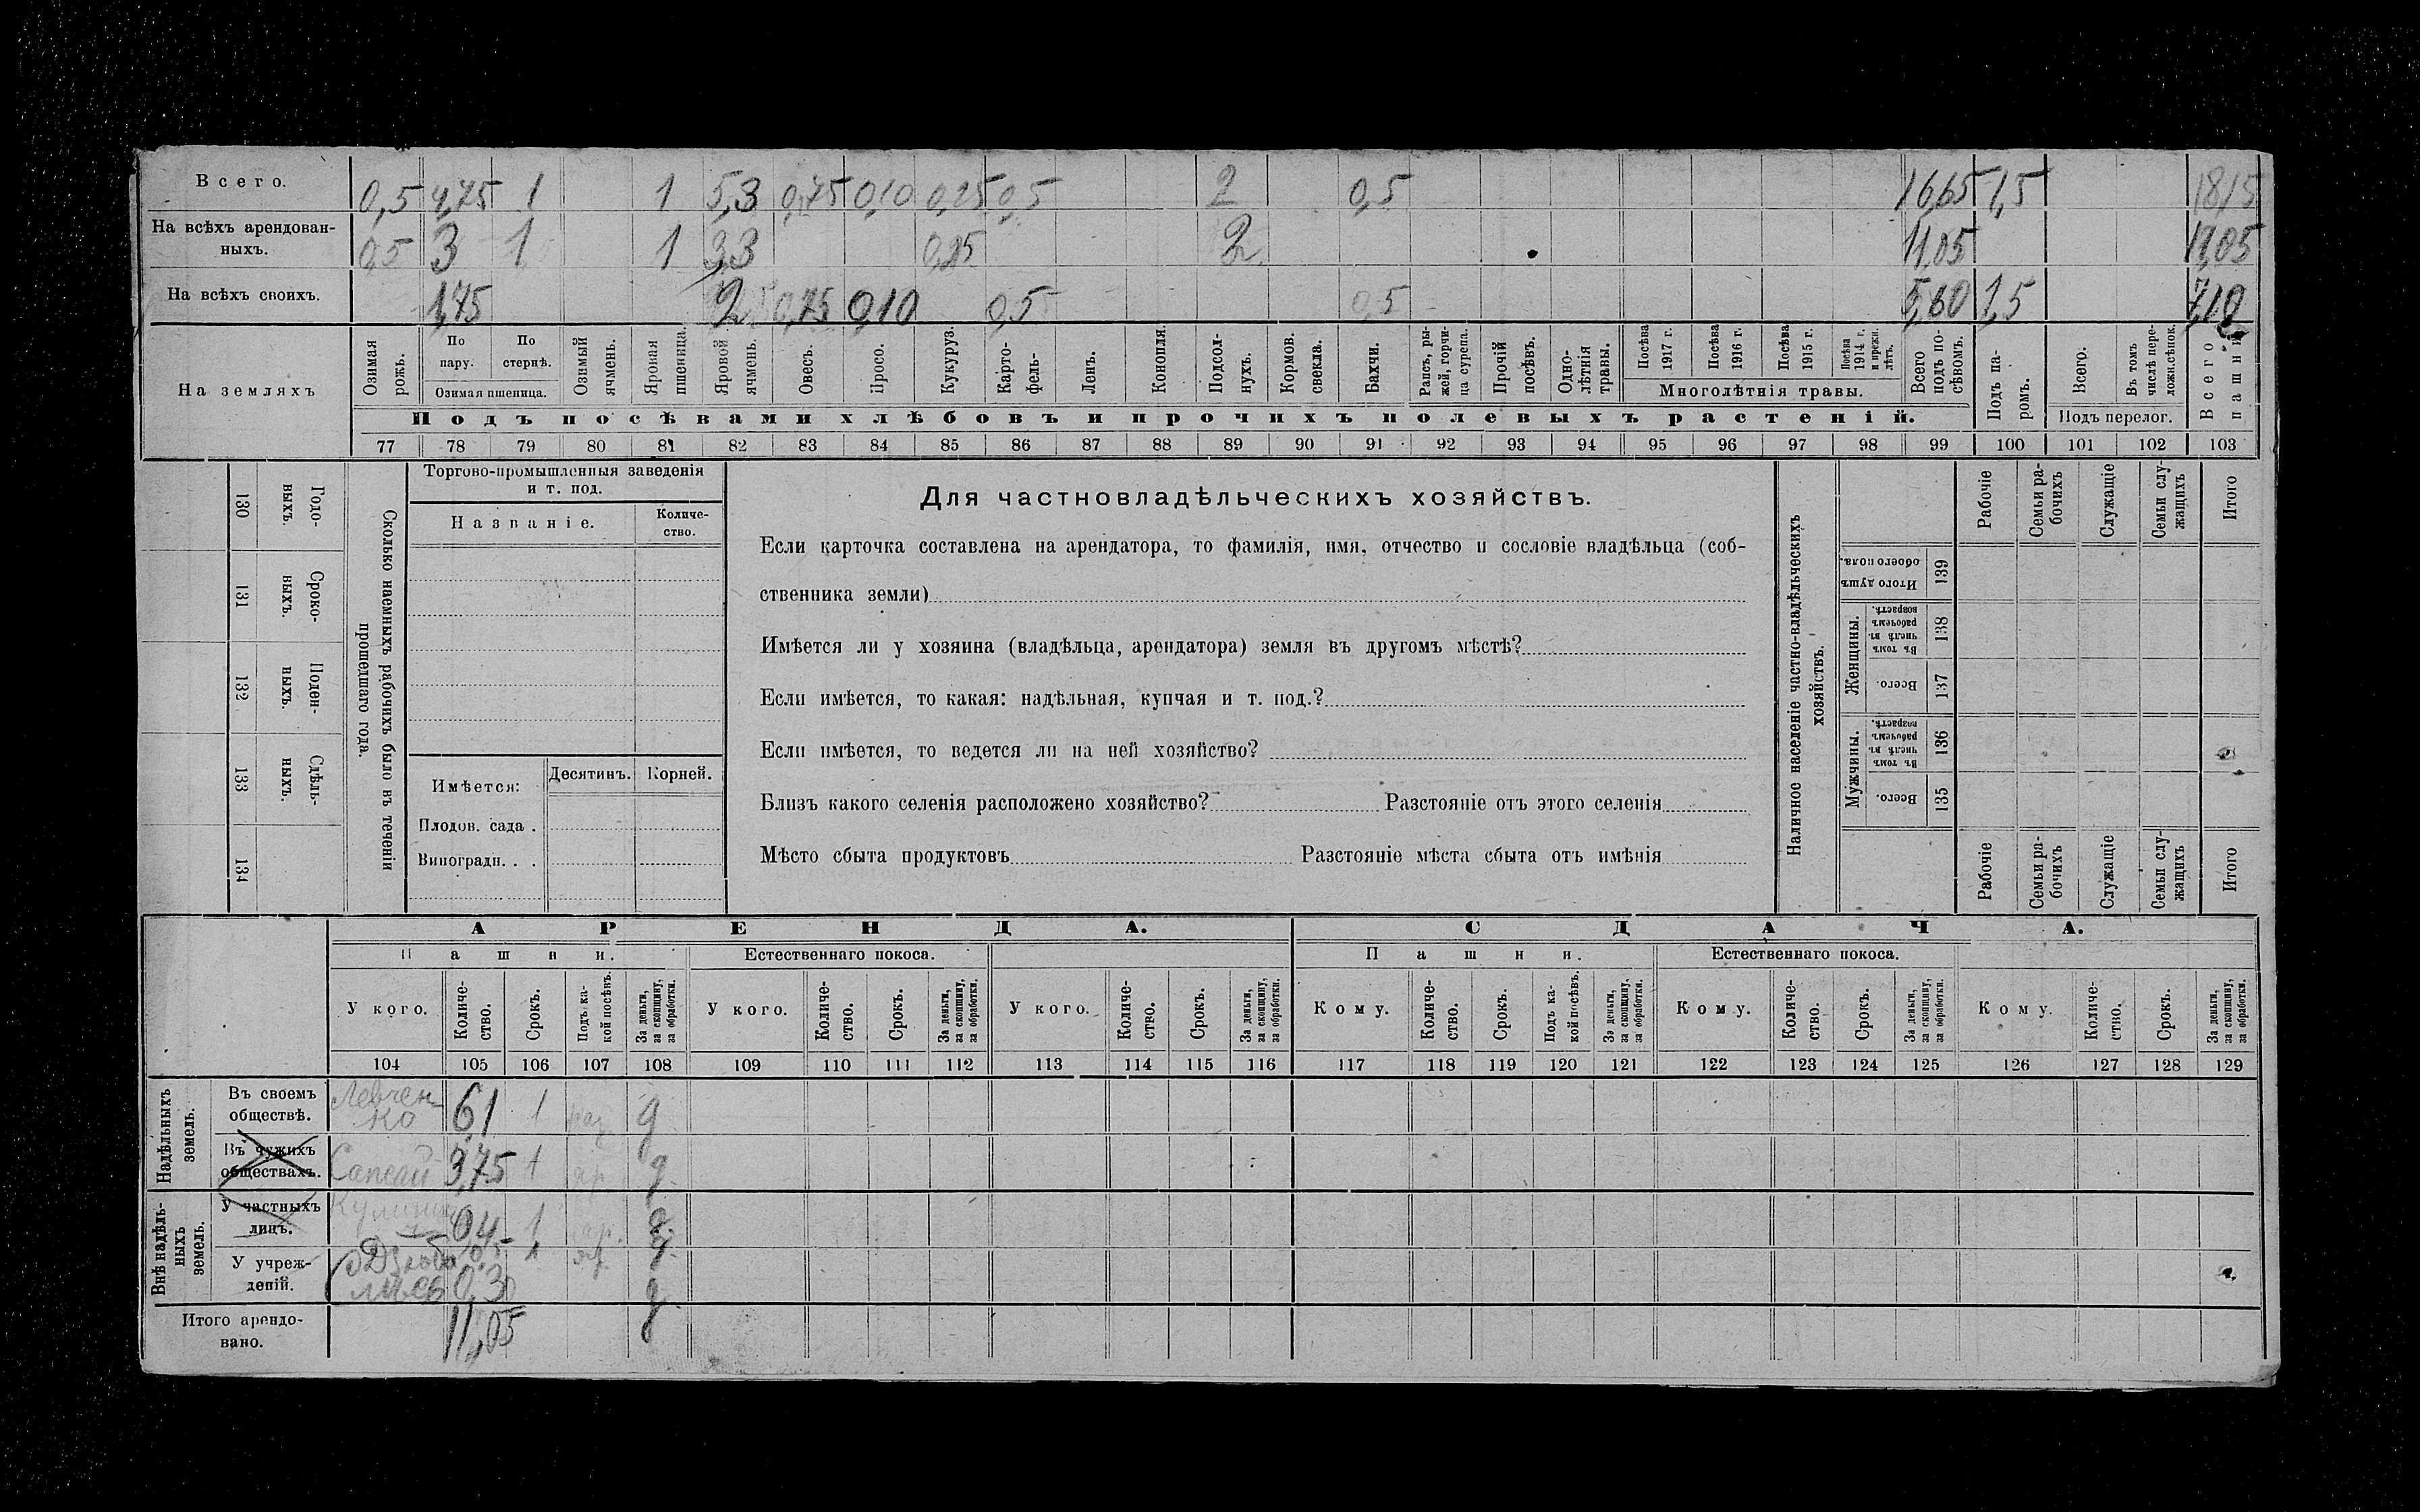 Всего. 0,5 4,75 1 1 5,3 0,75 0,10 0,25 0,5 2 0,5 16,65 1,5 18,15
На всѣхъ арендован-
ныхъ. 0,5 3 1 1 3,3 0,25 2 11,05 11,05
На всѣхъ своихъ. 1,75 2 0,75 0,10 0,5 0,5 5,60 1,5 7,10
На земляхъ
Озимая рожь.
По пару.
По стернѣ.
Озимая пшеница.
Озимый ячмень.
Яровая пшеница.
Яровой ячмень.
Овесъ.
Просо.
Кукуруз.
Карто-
фель-
Ленъ.
Конопля.
Подсол-
нухъ.
Кормов.
свекла.
Бахчи.
Рапсъ, ры-
жей, горчи-
ца сурепа.
Прочій
посѣвъ.
Одно-
лѣтнія
травы.
Посѣва
1917 г.
Посѣва
1916 г.
Посѣва
1915 г.
Посѣва
1914 г.
и прежн.
лѣтъ.
Многолѣтнія травы.
Всего
подъ по-
сѣвомъ.
Подъ па-
ромъ.
Всего.
Въ томъ
числѣ пере-
ложн.сѣнок.
Подъ перелог.
Всего
пашни
Подъ посѣвами хлѣбовъ и прочихъ полевыхъ растеній.
77 78 79 80 81 82 83 84 85 86 87 88 89 90 91 92 93 94 95 96 97 98 99 100 101 102 103
Сколько наемныхъ рабочихъ было въ теченіи
прошедшаго года.
Годо-
выхъ.
130
Сроко-
ныхъ.
131
Поден-
ныхъ.
132
Сдѣль-
ныхъ.
133
134
Торгово-промышленныя заведенія
и т. под.
Названіе.
Количе-
ство.
Имѣется:
Десятинъ.
Корней.
Плодов. сада .
Виноградн. . .
Для частновладѣльческихъ хозяйствъ.
Если карточка составлена на арендатора, то фамилія, имя, отчество и сословіе владѣльца (соб-
ственника земли)
Имѣется ли у хозяина (владѣльца, арендатора) земля въ другомъ мѣстѣ?
Если имѣется, то какая: надѣльная, купчая и т. под.?
Если имѣется, то ведется ли на ней хозяйство?
Близъ какого селенія расположено хозяйство? Разстояніе отъ этого селенія
Мѣсто сбыта продуктовъ Разстояніе мѣста сбыта отъ имѣнія
Наличное населеніе частно-владѣльческихъ
хозяйствъ.
Рабочіе
Семьи ра-
бочихъ
Служащіе
Семьи слу-
жащихъ
Итого
Итого душъ
обоего пола.
139
Женщины.
Въ томъ
числѣ въ
рабочемъ
возрастѣ.
138
Всего.
137
Мужчины.
Въ томъ
числѣ въ
рабочемъ
возрастѣ.
136
Всего.
135
Рабочіе
Семьи ра-
бочихъ
Служащіе
Семьи слу-
жащихъ
Итого
АРЕНДА.
СДАЧА.
Пашни.
Естественнаго покоса.
Пашни.
Естественнаго покоса.
У кого.
Количе-
ство.
Срокъ.
Подъ ка-
кой посѣвъ.
За деньги,
за скопщину,
за обработки.
У кого.
Количе-
ство.
Срокъ.
За деньги,
за скопщину,
за обработки.
У кого.
Количе-
ство.
Срокъ.
За деньги,
за скопщину,
за обработки.
Кому.
Количе-
ство.
Срокъ.
Подъ ка-
кой посѣвъ.
За деньги,
за скопщину,
за обработки.
Кому.
Количе-
ство.
Срокъ.
За деньги,
за скопщину,
за обработки.
Кому.
Количе-
ство.
Срокъ.
За деньги,
за скопщину,
за обработки.
104 105 106 107 108 109 110 111 112 113 114 115 116 117 118 119 120 121 122 123 124 125 126 127 128 129
Надѣльныхъ
земель.
Въ своемъ
обществѣ.
Левчен-
ко 6,1 1 раз д
Въ чужихъ
обществахъ.
3,75 1 яр д
Внѣ надѣль-
ныхъ
земель.
У частныхъ
лицъ.
0,4 1 яр. д
У учреж-
деній.
1 яр д
0,30 д
Итого арендо-
вано.
11,05